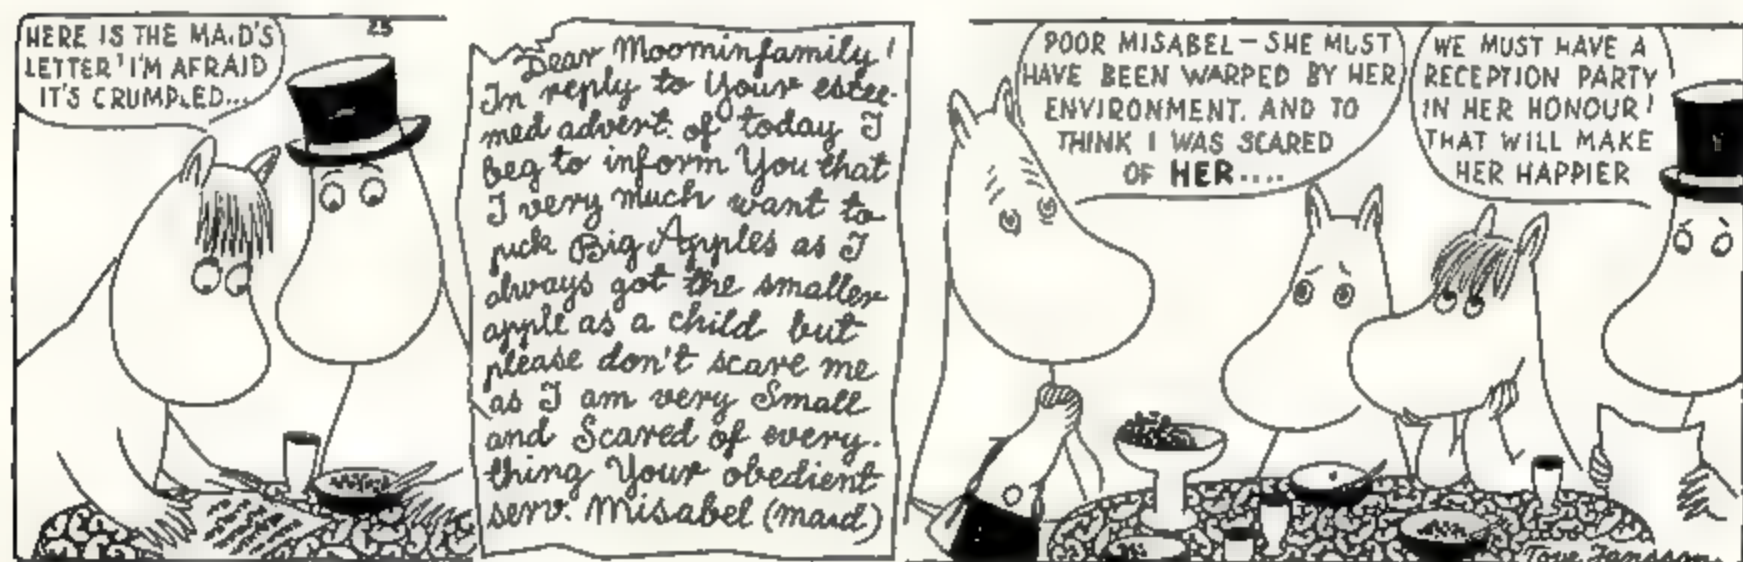 HERE IS THE MAID'S
LETTER! I'M AFRAID
IT'S CRUMPLED...
25
Dear Moominfamily!
In reply to Your estee-
med advert. of today I
beg to inform You that
I very much want to
pick Big Apples as I
always got the smaller
apple as a child but
please don't scare me
as I am very Small
and Scared of every-
thing Your obedient
serv. Misabel (maid)
POOR MISABEL — SHE MUST
HAVE BEEN WARPED BY HER
ENVIRONMENT. AND TO
THINK I WAS SCARED
OF HER....
WE MUST HAVE A
RECEPTION PARTY
IN HER HONOUR!
THAT WILL MAKE
HER HAPPIER
Tove Jansson